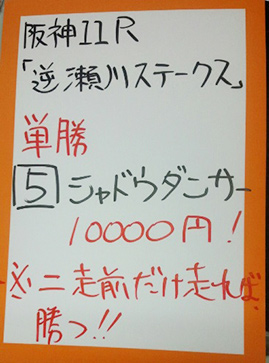 阪神11R
「逆瀬川ステークス」
単勝
5 シャドウダンサー
10000円!
※二走前だけ走れば
勝つ!!